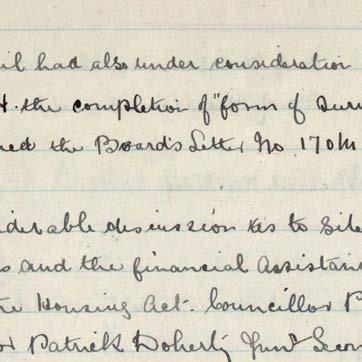 il had also under consideration
t the completion of "form of Surv
ned the Board's Letter No 170M
iderable discussion as to Site
s and the financial Assistan
re Housing Act. Councillor P
or Patrick Doherty Junr Secon